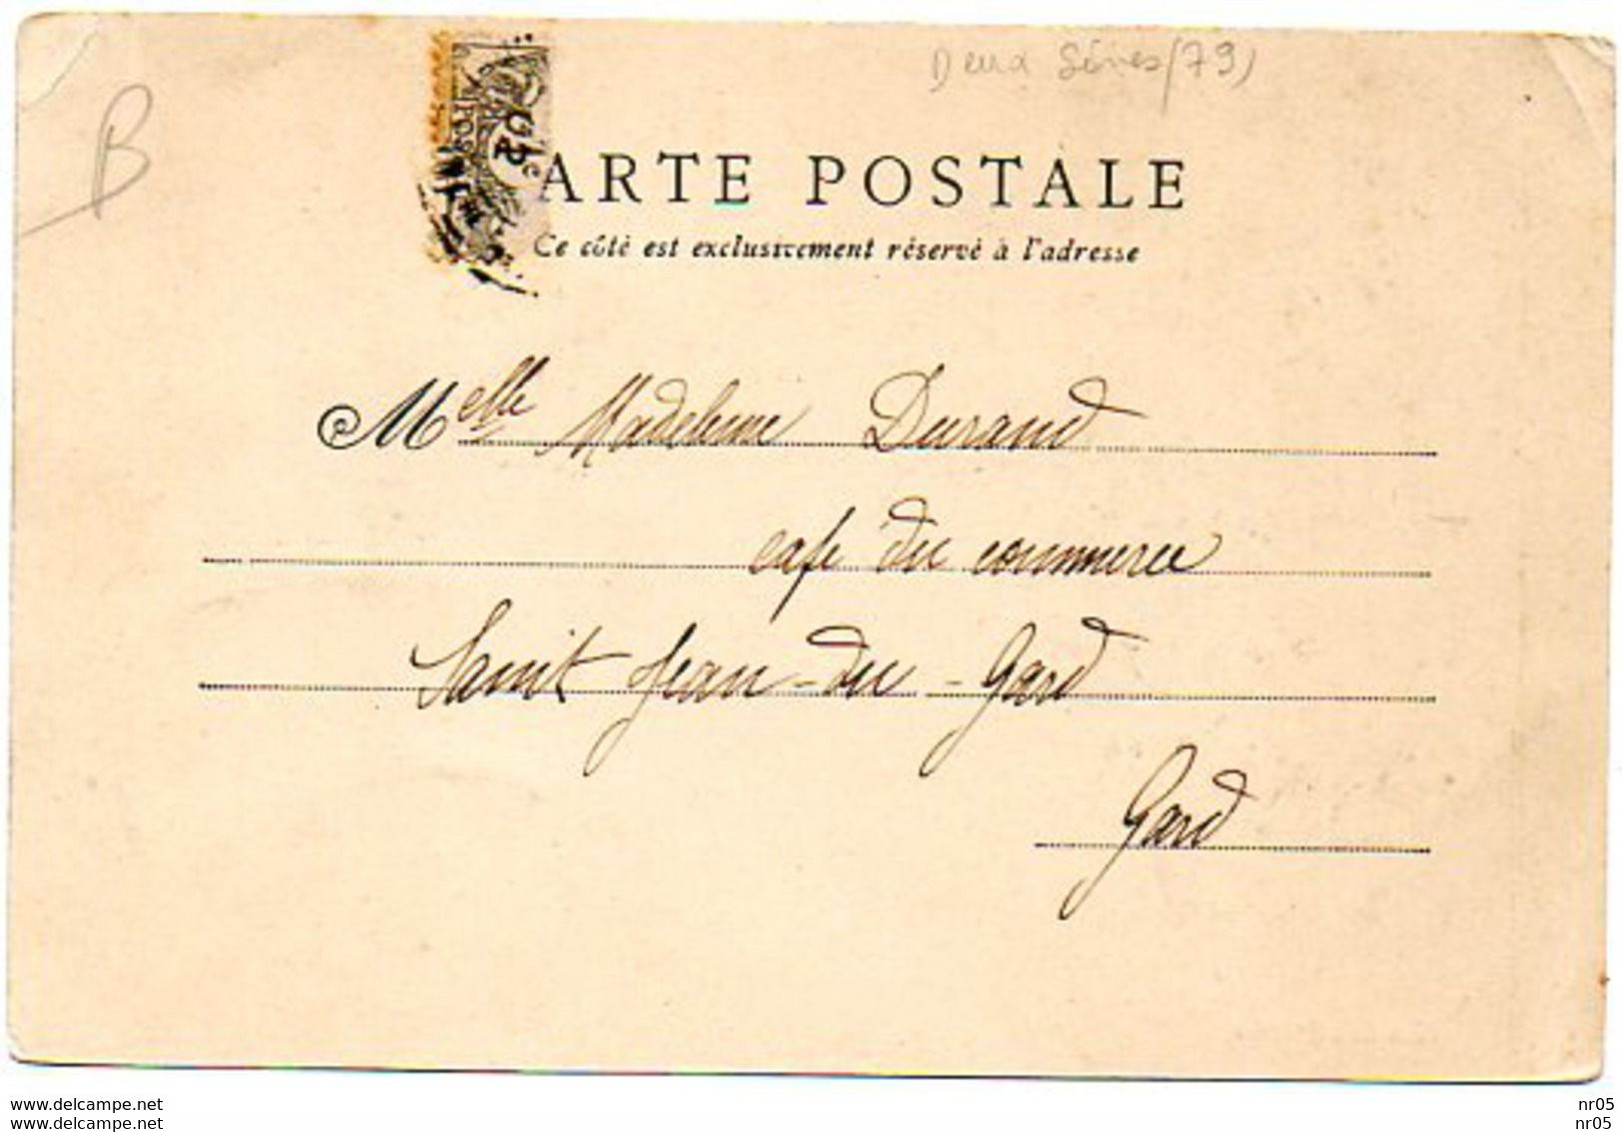 Deux Sèvres (79)
B
ARTE POSTALE
Ce côté est exclusivement réservé à l'adresse
Melle Madeleine Durand
café du commerce
Saint Jean-du-Gard
Gard
www.delcampe.net
www.delcampe.net
nr05
nr05